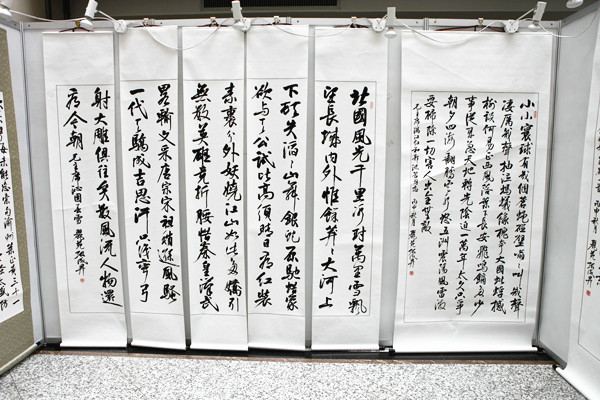 小小寰球有幾個蒼蠅碰壁嗡嗡叫幾聲
淒厲幾聲抽泣螞蟻緣槐夸大國蚍蜉撼
樹談何易正西風落葉下長安飛鳴鏑多少
事從來急天地轉光陰迫一萬年太久只爭
朝夕四海翻騰雲水怒五洲震盪風雷激
要掃除一切害人蟲全無敵
毛主席滿江紅和郭沫若同志 丙申秋月
北國風光千里冰封萬里雪飄
望長城內外惟餘莽莽大河上
下頓失滔滔山舞銀蛇原馳蠟象
欲與天公試比高須晴日看紅裝
素裹分外妖嬈江山如此多嬌引
無數英雄競折腰惜秦皇漢武
略輸文采唐宗宋祖稍遜風騷
一代天驕成吉思汗只識彎弓
射大雕俱往矣數風流人物還
看今朝 毛主席沁園春雪